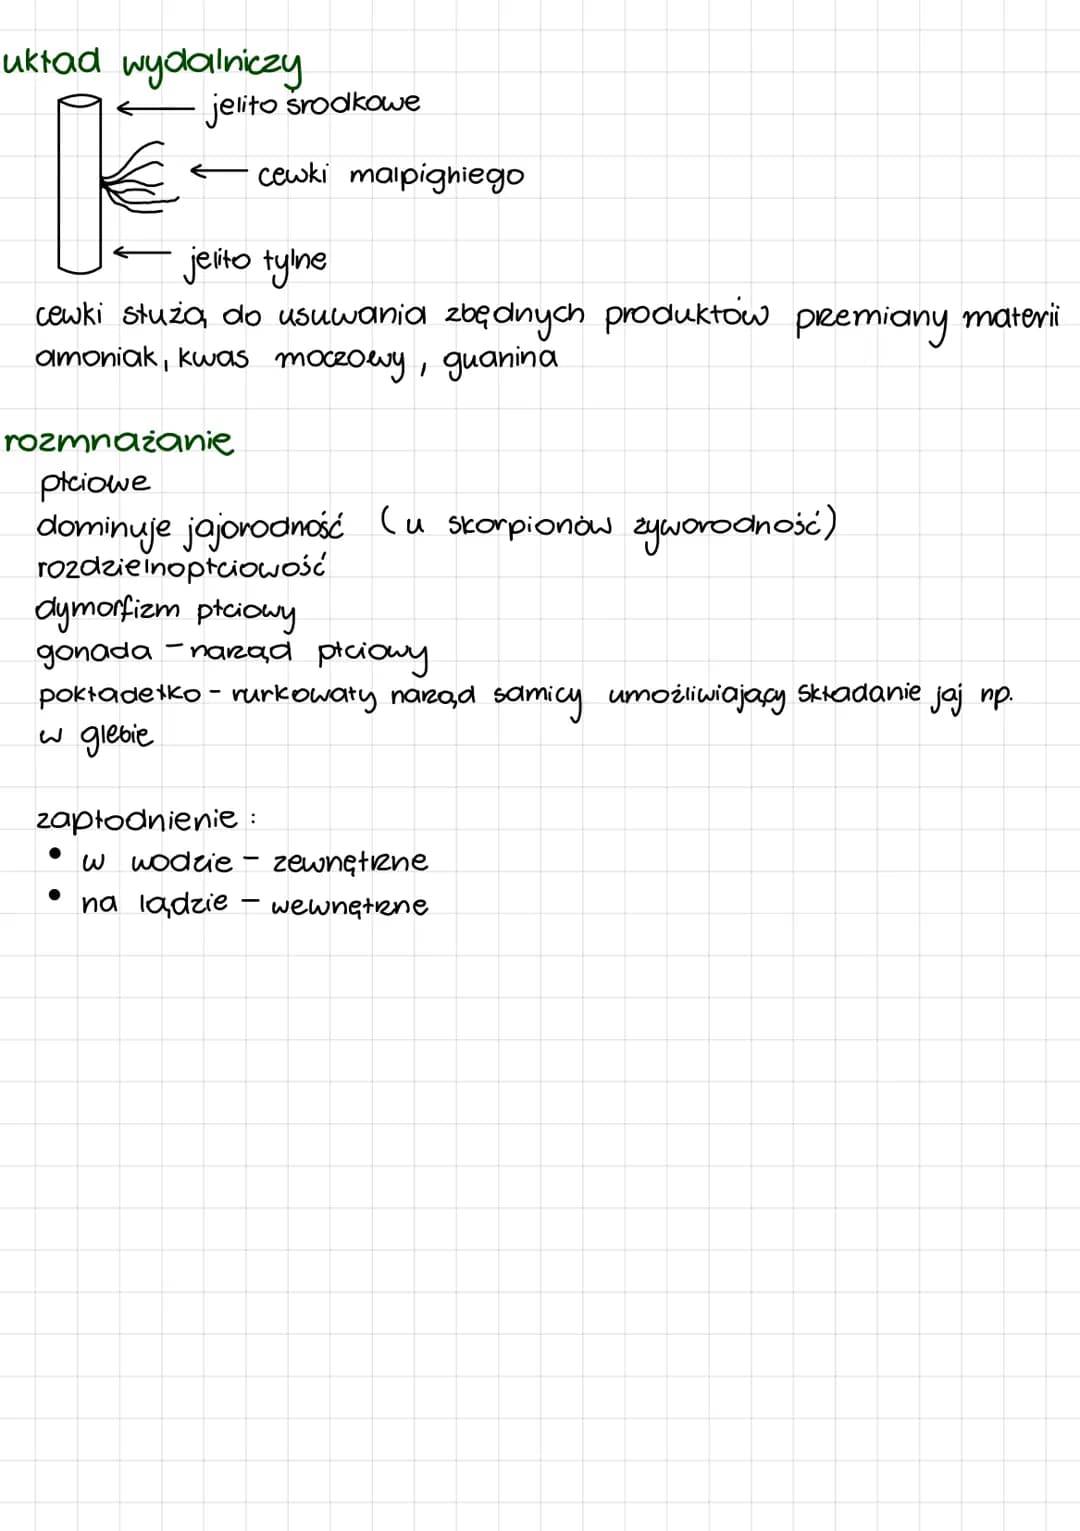 układ wydalniczy
jelito środkowe
cewki malpighiego
jelito tylne
cewki służą do usuwania zbędnych produktów przemiany materii
amoniak, kwas moczowy, guanina
rozmnażanie
płciowe
dominuje jajorodność (u skorpionów żyworodność)
rozdzielnopłciowość
dymorfizm płciowy
gonada - narząd płciowy
pokładełko - rurkowaty narząd samicy umożliwiający składanie jaj np.
w glebie
zapłodnienie :
• w wodzie - zewnętrzne
• na lądzie - wewnętrzne